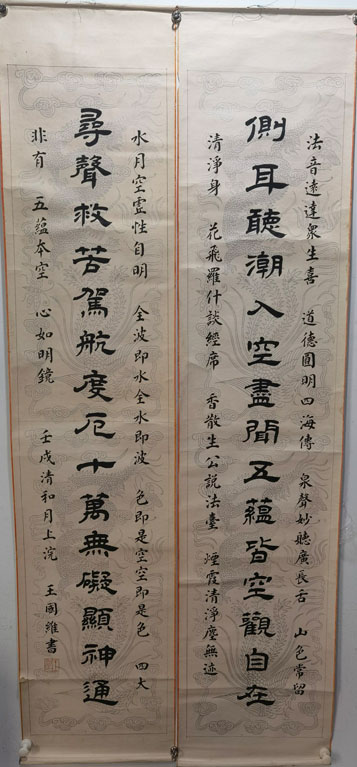 法音遠達衆生喜 道德圓明四海傳 泉聲妙聽廣長舌 山色常留
側耳聽潮入空盡聞五蘊皆空觀自在
清淨身 花飛羅什談經席 香散生公說法臺 煙霞清淨塵無迹
水月空靈性自明 全波即水全水即波 色即是空空即是色 四大
尋聲救苦駕航度厄十萬無礙顯神通
非有 五蘊本空 心如明鏡 壬戌清和月上浣 王國維書